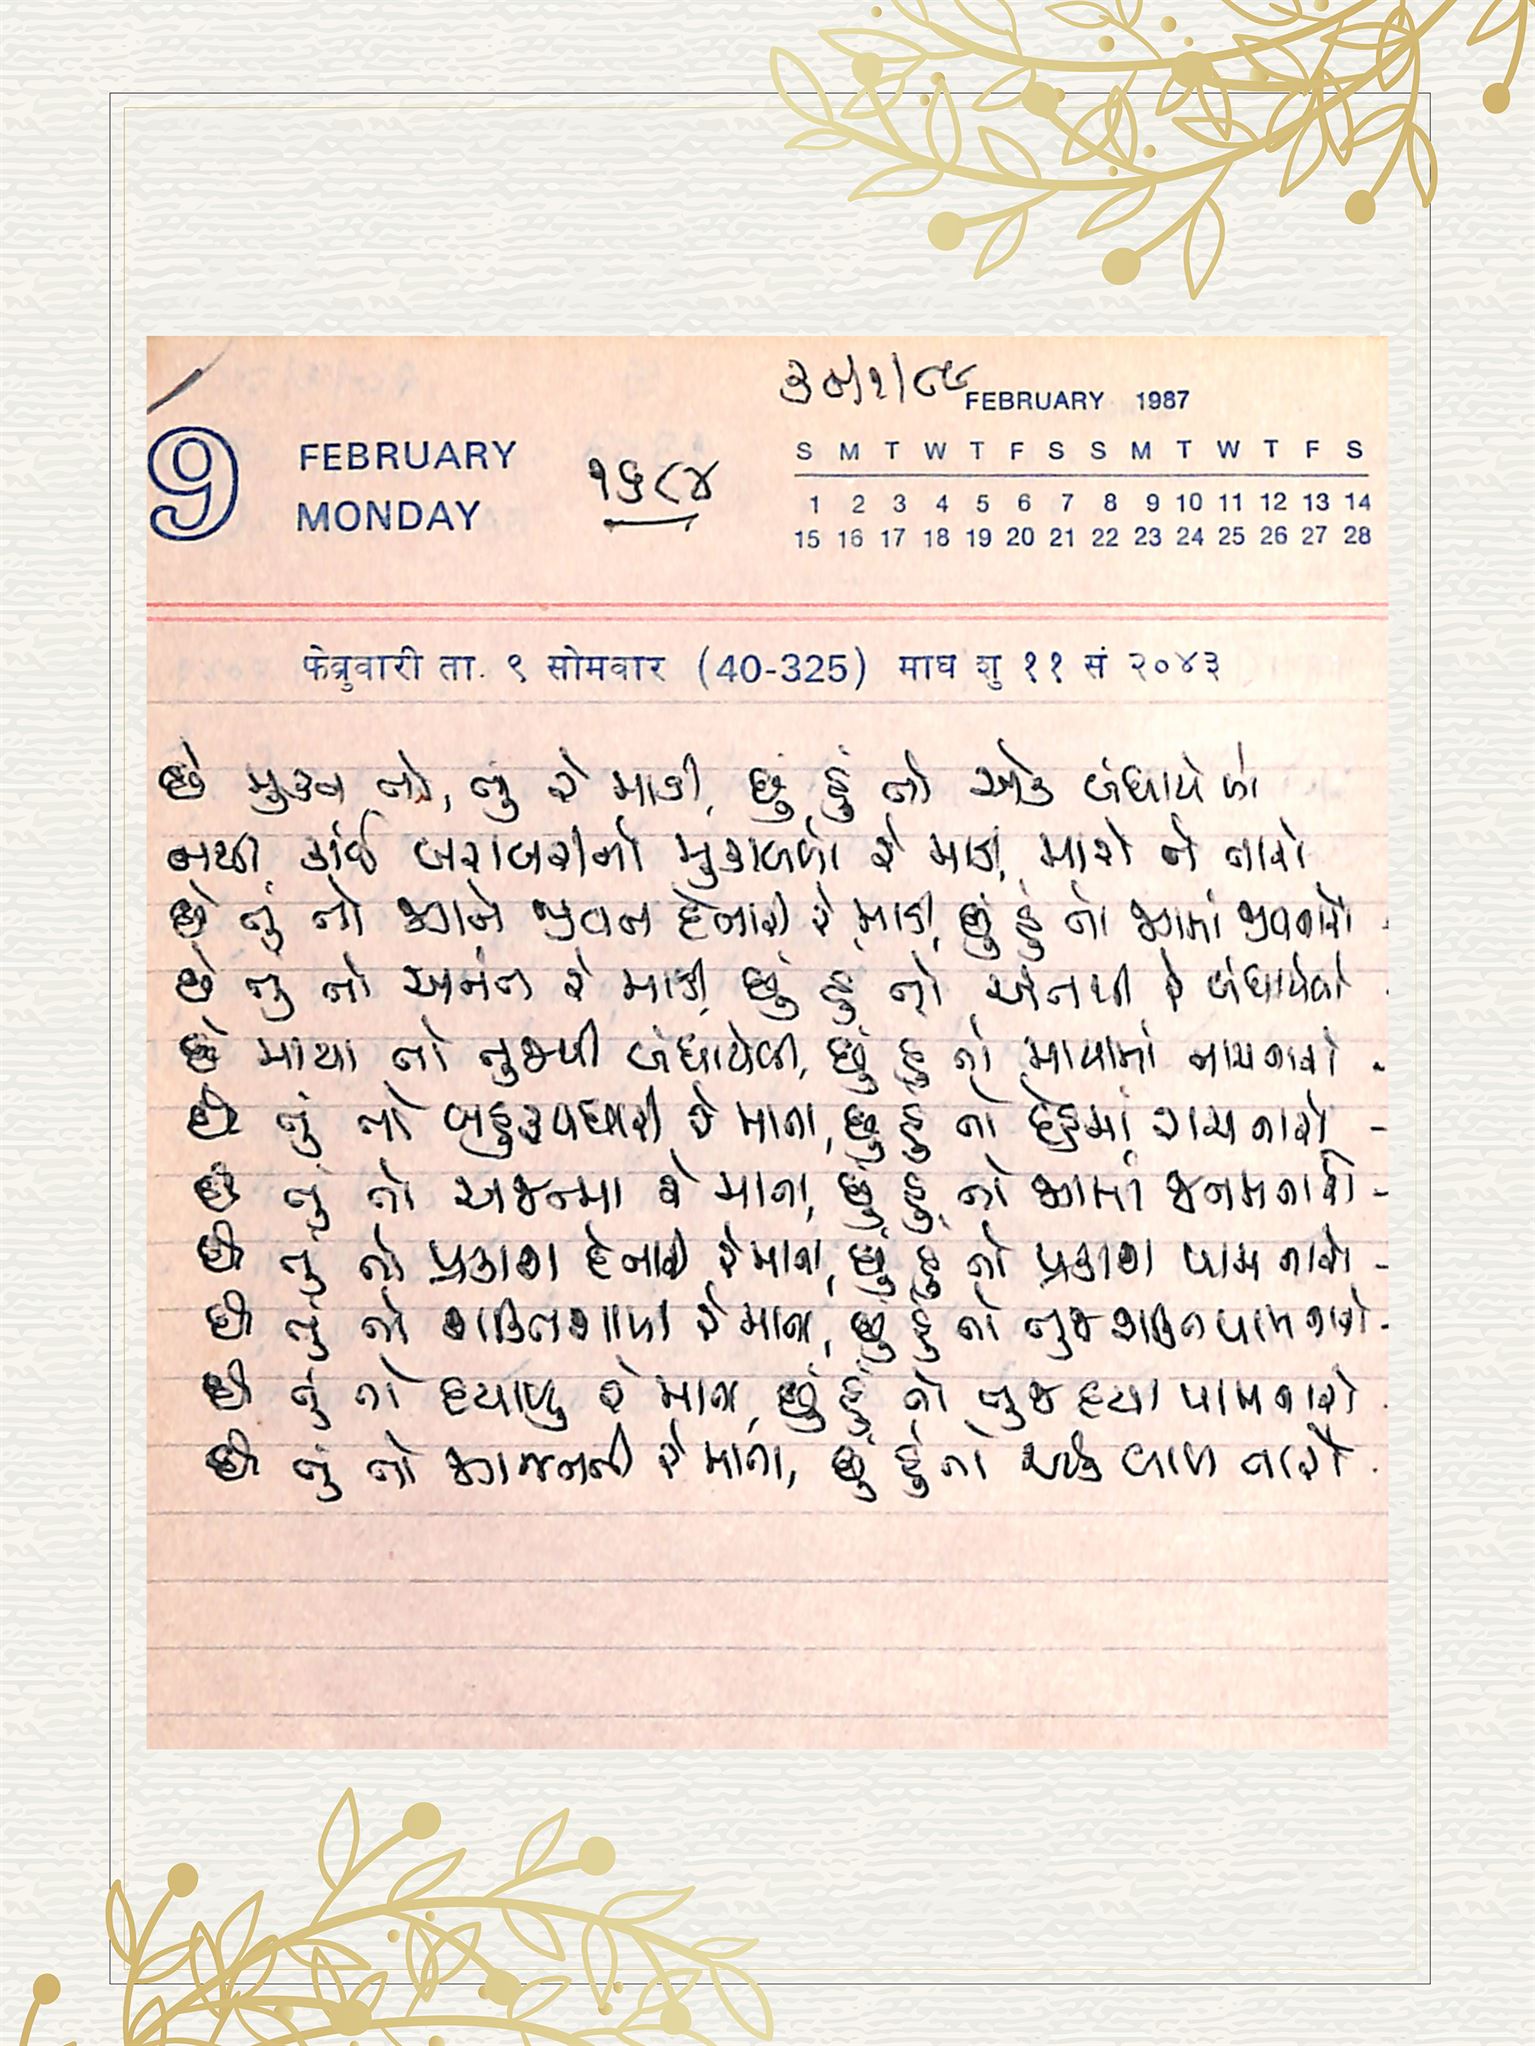 ૩૦/૧/૮૯
FEBRUARY 1987
9 FEBRUARY
MONDAY
૧૬૮૪
S M T W T F S S M T W T F S
1 2 3 4 5 6 7 8 9 10 11 12 13 14
15 16 17 18 19 20 21 22 23 24 25 26 27 28
फेब्रुवारी ता. ९ सोमवार (40-325) माघ शु ११ सं २०४३
છે મુક્ત તો, તું રે માડી, છું હું તો એક બંધાયેલો
નથી કાંઈ બરાબરીનો મુકાબલો રે માડી, મારો ને તારો
છે તું તો જગને જીવન દેનારી રે માડી, છું હું તો જગમાં જીવનારો -
છે તું તો અનંત રે માડી, છું હું તો અંતથી રે બંધાયેલો -
છે માયા તો તુજથી બંધાયેલી, છું હું તો માયામાં નાચનારો -
છે તું તો બહુરૂપધારી રે માતા, છું હું તો દેહમાં રાચનારો -
છે તું તો અજન્મા રે માતા, છું હું તો જગમાં જનમનારો -
છે તું તો પ્રકાશ દેનારી રે માતા, છું હું તો પ્રકાશ પામનારો -
છે તું તો શક્તિશાળી રે માતા, છું હું તો તુજ શક્તિ પામનારો -
છે તું તો દયાળુ રે માતા, છું હું તો તુજ દયા પામનારો -
છે તું તો જગજનની રે માતા, છું હું તો એક બાળ તારો -